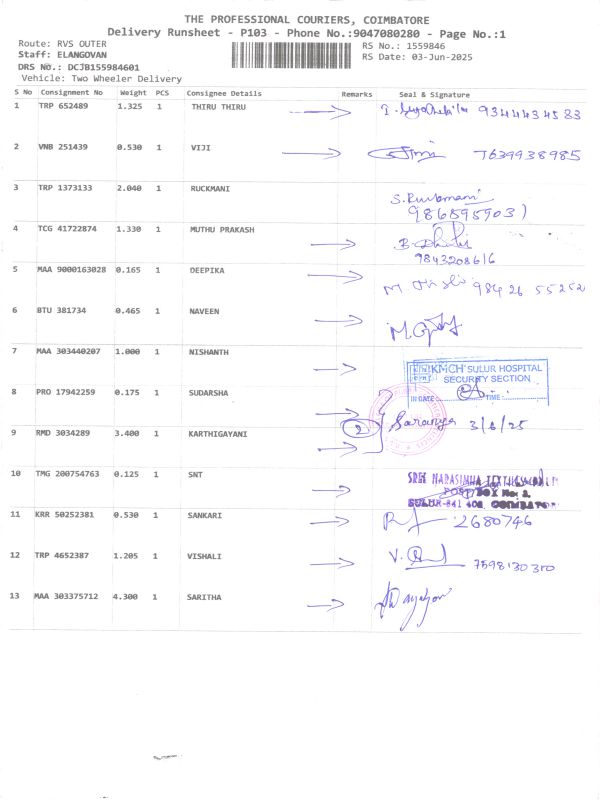 THE PROFESSIONAL COURIERS, COIMBATORE
Delivery Runsheet - P103 - Phone No.:9047080280 - Page No.:1
Route: RVS OUTER RS No.: 1559846
Staff: ELANGOVAN RS Date: 03-Jun-2025
DRS No.: DCJB155984601
Vehicle: Two Wheeler Delivery
S No Consignment No Weight PCS Consignee Details Remarks Seal & Signature
1 TRP 652489 1.325 1 THIRU THIRU 9344434583
2 VNB 251439 0.530 1 VIJI 7639938985
3 TRP 1373133 2.040 1 RUCKMANI S. Rukmani
9868959031
4 TCG 41722874 1.330 1 MUTHU PRAKASH
9843208616
5 MAA 9000163028 0.165 1 DEEPIKA 98426 55252
6 BTU 381734 0.465 1 NAVEEN
7 MAA 303440207 1.000 1 NISHANTH KMCH SULUR HOSPITAL
SECURITY SECTION
IN DATE: TIME:
8 PRO 17942259 0.175 1 SUDARSHA
2 Saranya 3/6/25
9 RMD 3034289 3.400 1 KARTHIGAYANI
10 TMG 200754763 0.125 1 SNT SREE NARASIMHA
POST BOX No: 1,
SULUR-641 402, COIMBATORE
11 KRR 50252381 0.530 1 SANKARI 2680746
12 TRP 4652387 1.205 1 VISHALI 7598130310
13 MAA 303375712 4.300 1 SARITHA